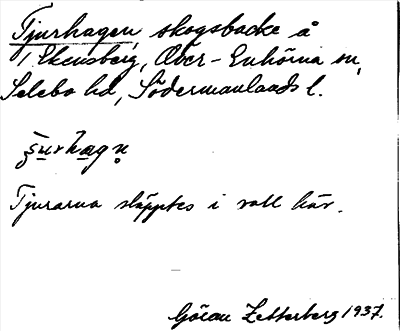 Tjurhagen, skogsbacke å
/ Ekensberg, Över-Enhörna sn,
Selebo hd, Södermanlands l.
Tjurarna släpptes i vall här.
Göran Zetterberg 1937.